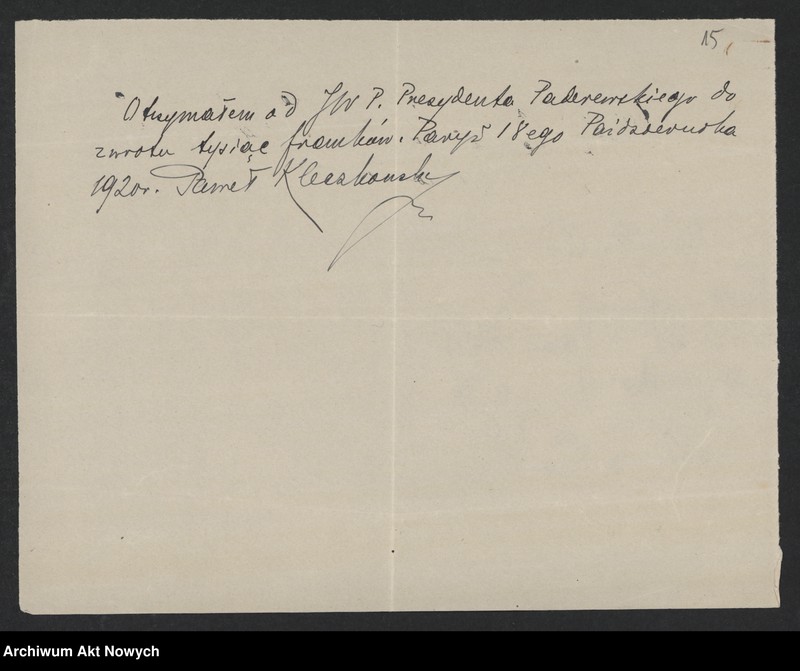 15
Otrzymałem od JW P. Prezydenta Paderewskiego do
zwrotu tysiąc franków. Paryż 18ego Października
1920r. Paweł Kleczkowski
Archiwum Akt Nowych